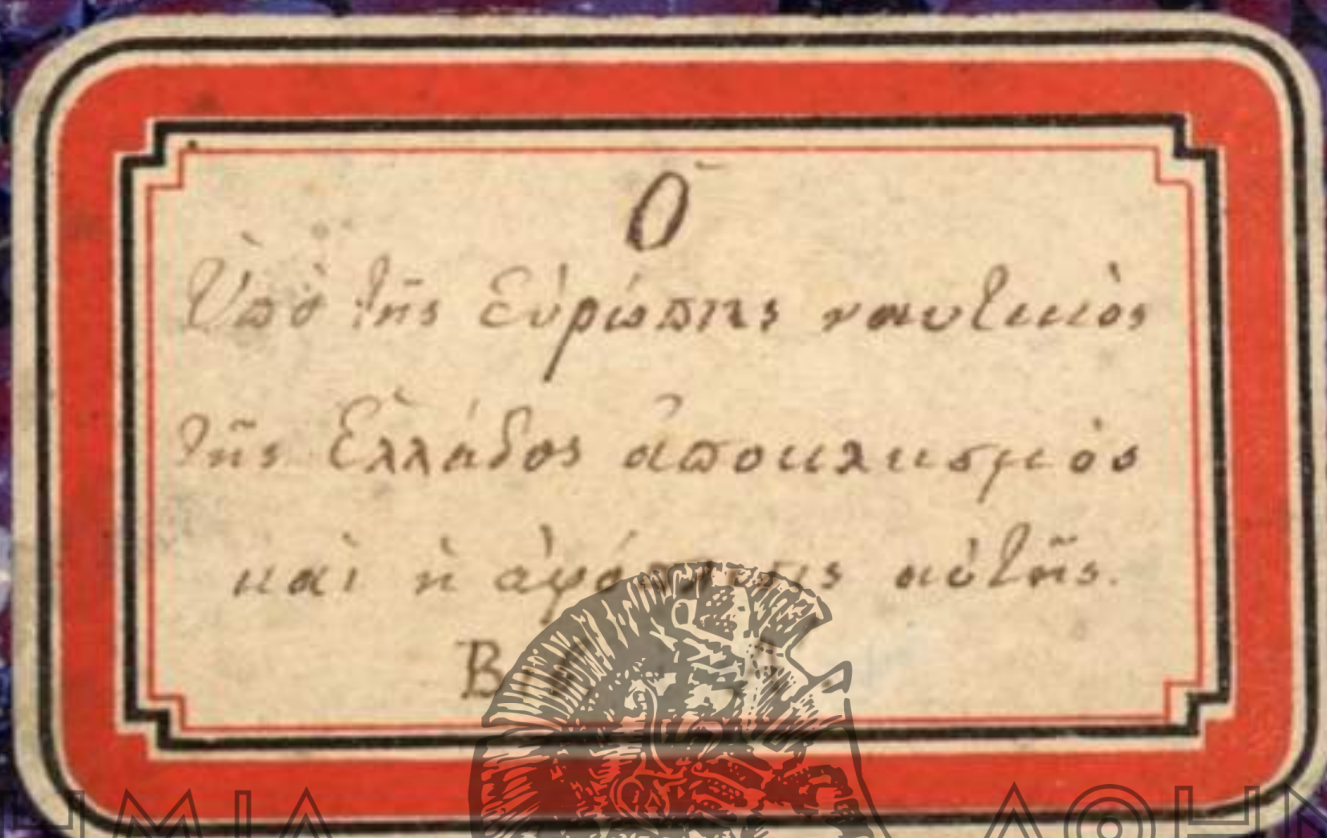 Ὁ
Ὑπὸ τῆς Εὐρώπης ναυτικὸς
τῆς Ἑλλάδος ἀποκλεισμὸς
καὶ ἡ ἀφόπλισις αὐτῆς.